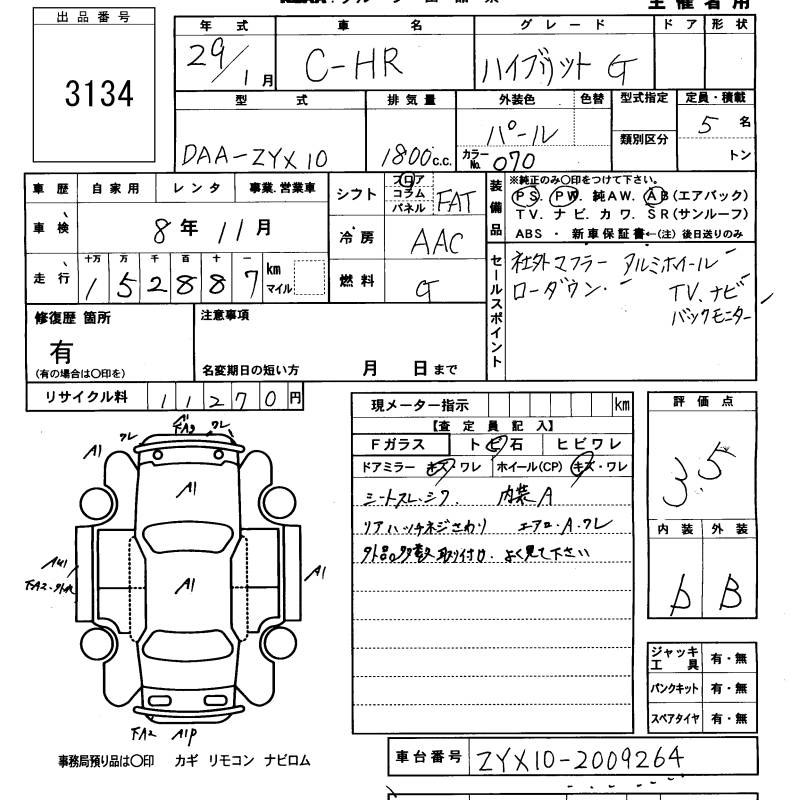 出品番号
3134
年式 車名 グレード ドア 形状
29/1月 C-HR ハイブリット G
型式 排気量 外装色 色替 型式指定 定員・積載
DAA-ZYX10 1800c.c. パール カラーNo. 070 類別区分 5名 トン
車歴 自家用 レンタ 事業.営業車 シフト フロア コラム パネル FAT
車検 8年 11月 冷房 AAC
走行 十万 万 千 百 十 一
152887 km マイル 燃料 G
装備品 ※純正のみ〇印をつけて下さい。
PS. PW. 純AW. AB(エアバック)
TV. ナビ. カワ. SR(サンルーフ)
ABS ・ 新車保証書←(注) 後日送りのみ
セールスポイント 社外マフラー アルミホイール
ローダウン. TV.ナビ
バックモニター
修復歴 箇所 注意事項
有
(有の場合は〇印を) 名変期日の短い方 月 日まで
リサイクル料 11270円
現メーター指示 km
【査定員記入】
Fガラス トビ石 ヒビワレ
ドアミラー キズ・ワレ ホイール(CP) キズ・ワレ
シートスレ.シワ. 内装A
リアハッチネジさわり エアロ.A.ワレ
外品多数取り付け. よく見て下さい
評価点
3.5
内装 外装
b B
ジャッキ工具 有・無
パンクキット 有・無
スペアタイヤ 有・無
ワレ ワレ
A1
A1
A1
A1
下A2 A1P
事務局預り品は〇印 カギ リモコン ナビロム
車台番号 ZYX10-2009264